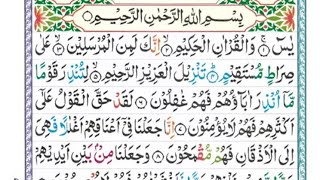 بِسْمِ اللهِ الرَّحْمٰنِ الرَّحِيْمِ
يٰسٓ ۚ﴿۱﴾ وَ الْقُرْاٰنِ الْحَكِيْمِ ۙ﴿۲﴾ اِنَّكَ لَمِنَ الْمُرْسَلِيْنَ ۙ﴿۳﴾ عَلٰى
صِرَاطٍ مُّسْتَقِيْمٍ ؕ﴿۴﴾ تَنْزِيْلَ الْعَزِيْزِ الرَّحِيْمِ ۙ﴿۵﴾ لِتُنْذِرَ قَوْمًا
مَّاۤ اُنْذِرَ اٰبَآؤُهُمْ فَهُمْ غٰفِلُوْنَ ﴿۶﴾ لَقَدْ حَقَّ الْقَوْلُ عَلٰۤى
اَكْثَرِهِمْ فَهُمْ لَا يُؤْمِنُوْنَ ﴿۷﴾ اِنَّا جَعَلْنَا فِيْۤ اَعْنَاقِهِمْ اَغْلٰلًا فَهِيَ
اِلَى الْاَذْقَانِ فَهُمْ مُّقْمَحُوْنَ ﴿۸﴾ وَ جَعَلْنَا مِنْۢ بَيْنِ اَيْدِيْهِمْ